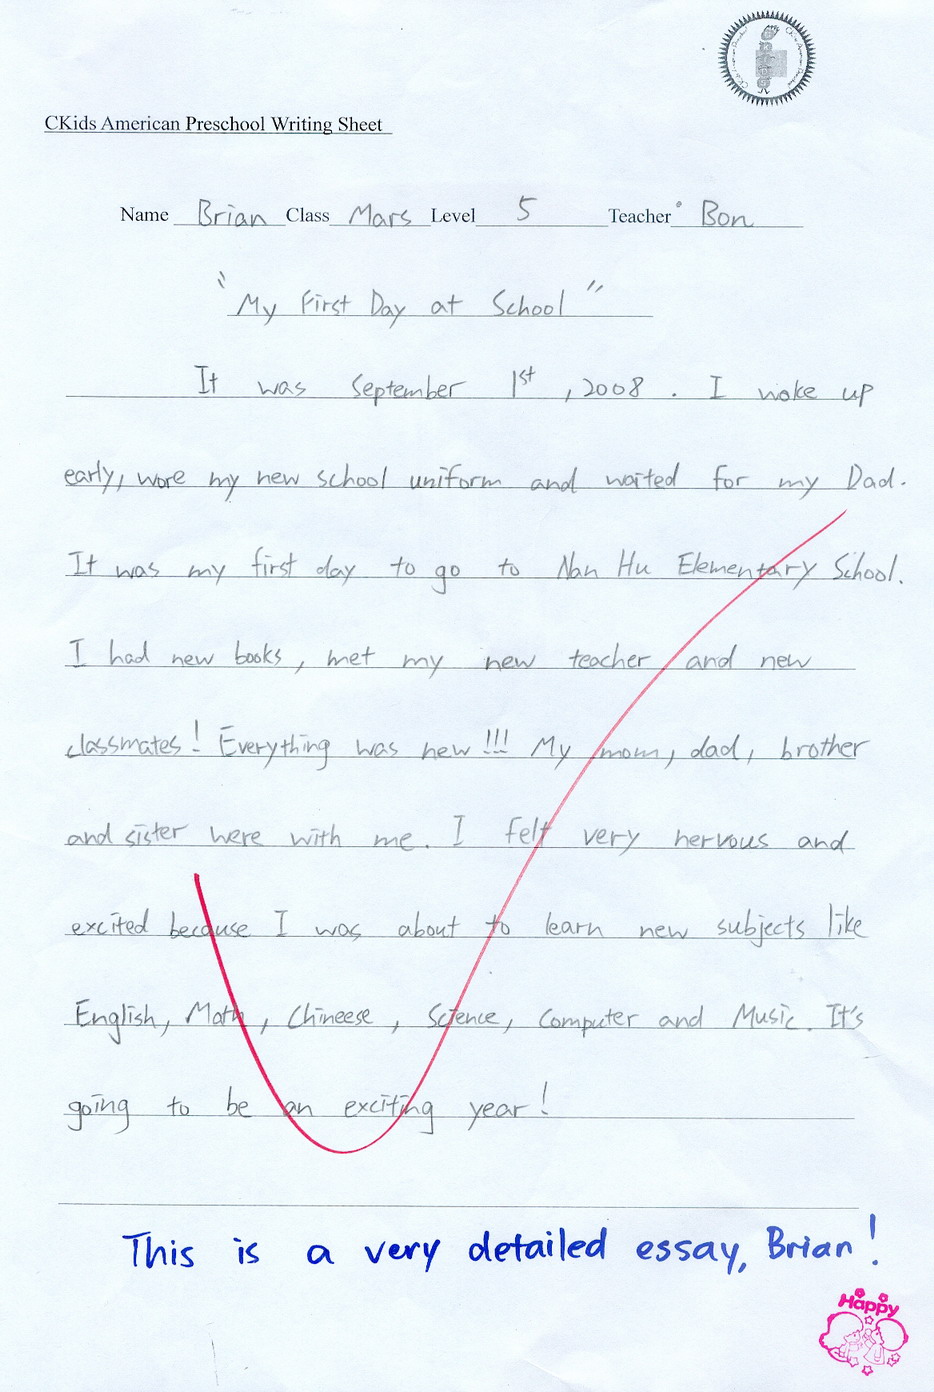 CKids American Preschool Writing Sheet
Name Brian Class Mars Level 5 Teacher Bon
"My First Day at School"
It was September 1st, 2008. I woke up
early, wore my new school uniform and waited for my Dad.
It was my first day to go to Nan Hu Elementary School.
I had new books, met my new teacher and new
classmates! Everything was new!!! My mom, dad, brother
and sister were with me. I felt very nervous and
excited because I was about to learn new subjects like
English, Math, Chineese, Science, Computer and Music. It's
going to be an exciting year!
This is a very detailed essay, Brian!
Happy